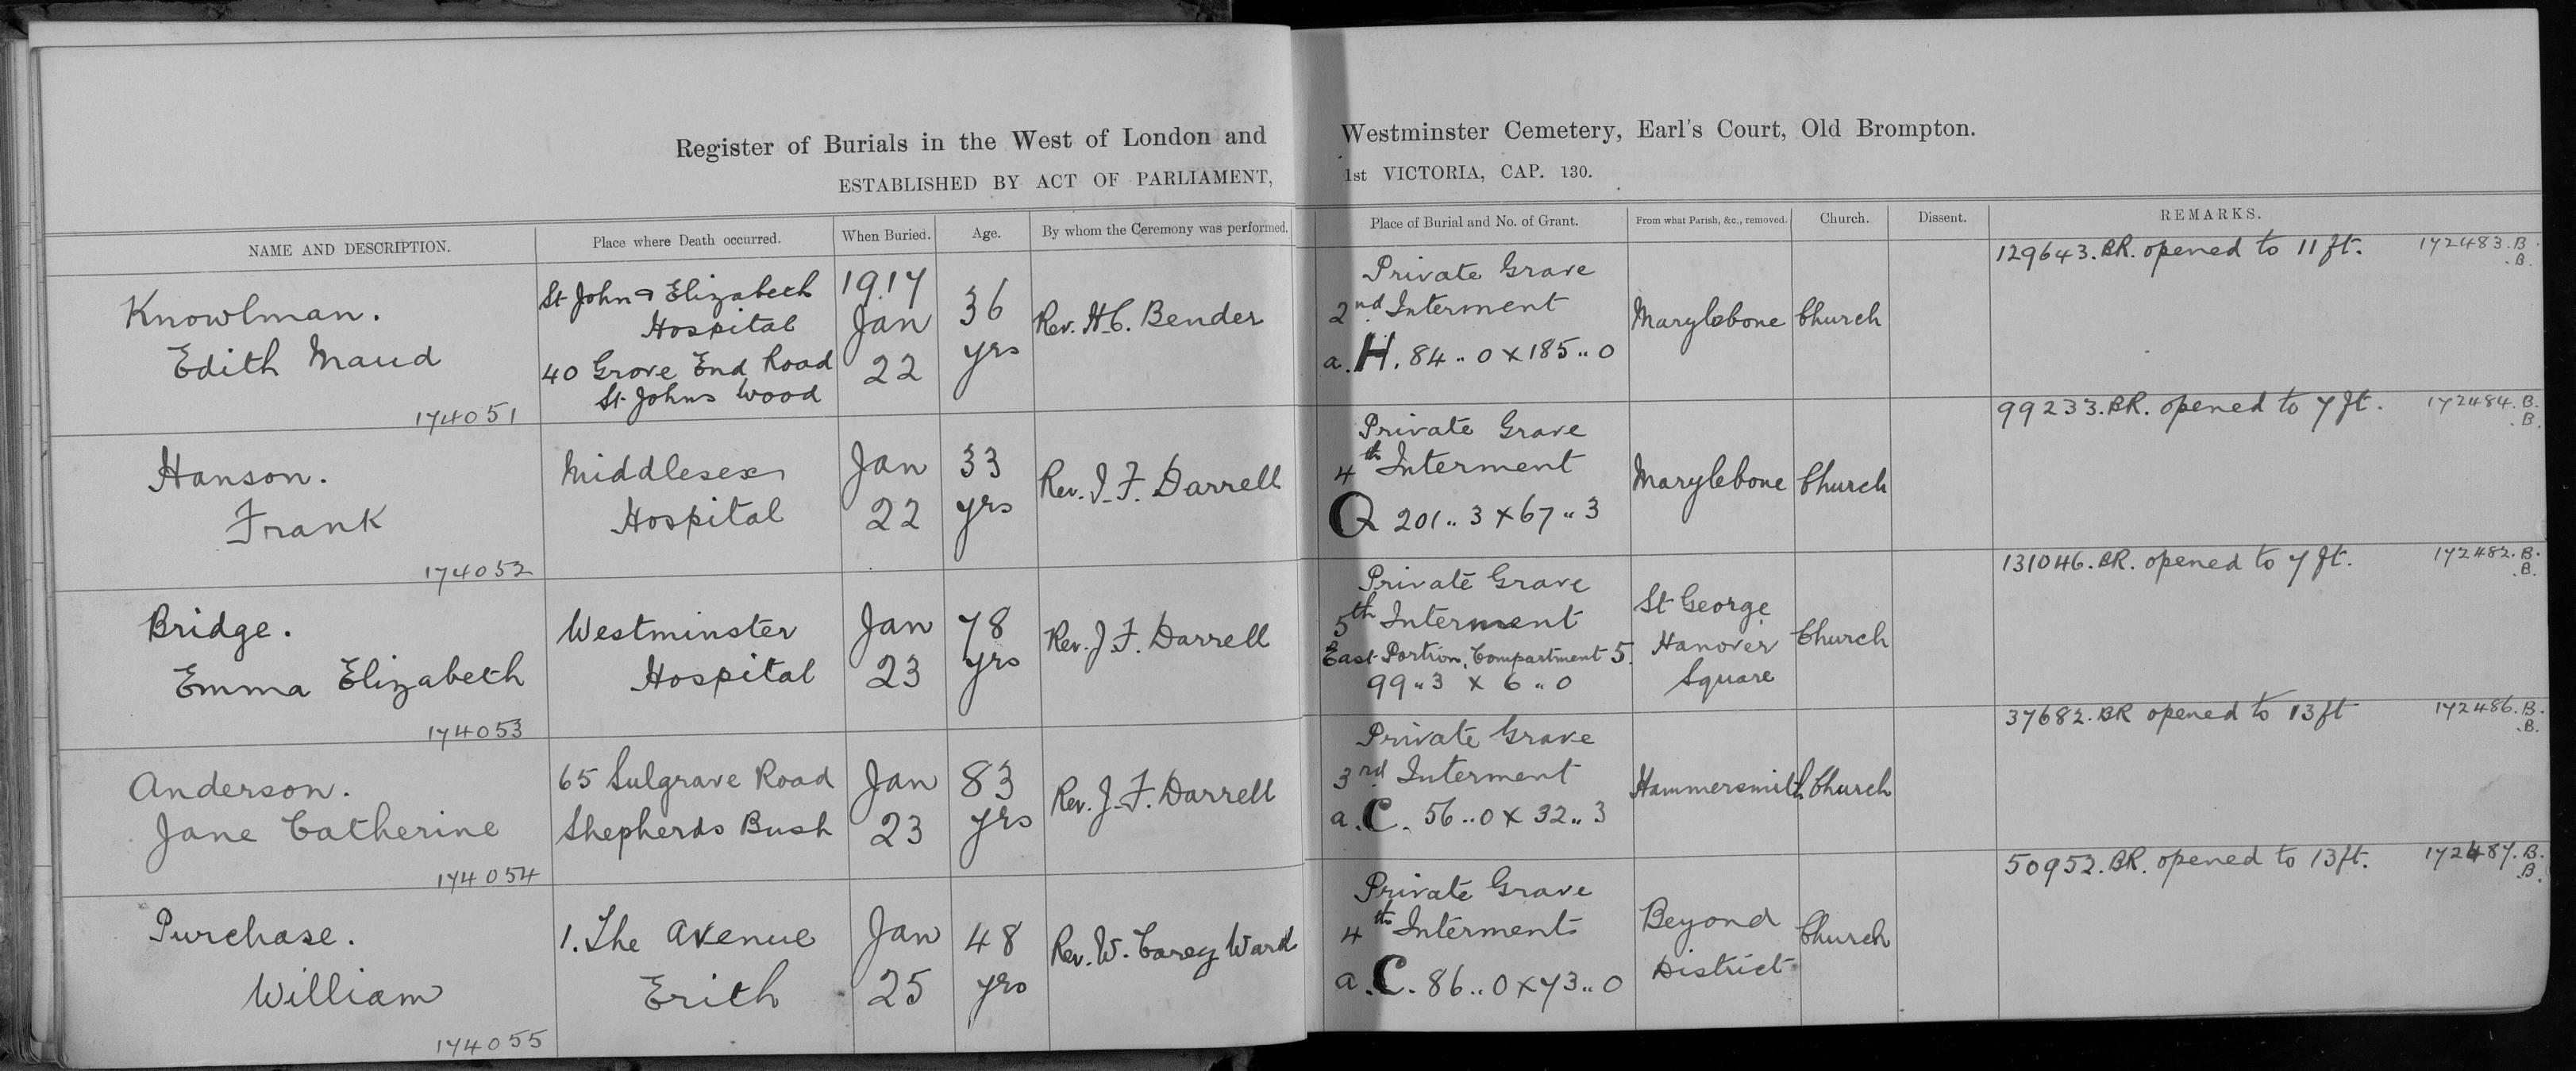 Register of Burials in the West of London and Westminster Cemetery, Earl's Court, Old Brompton.
ESTABLISHED BY ACT OF PARLIAMENT, 1st VICTORIA, CAP. 130.
NAME AND DESCRIPTION. Place where Death occurred. When Buried. Age. By whom the Ceremony was performed. Place of Burial and No. of Grant. From what Parish, &c., removed. Church. Dissent. REMARKS.
Knowlman.
Edith Maud
174051
St John & Elizabeth
Hospital
40 Grove End Road
St Johns Wood
1917
Jan
22
36
yrs
Rev. H.C. Bender
Private Grave
2nd Interment
a. H. 84.. 0 x 185.. 0
Marylebone
Church
129643. BR. opened to 11 ft. 172483. B.
.B.
Hanson.
Frank
174052
Middlesex
Hospital
Jan
22
33
yrs
Rev. J. F. Darrell
Private Grave
4th Interment
Q 201.. 3 x 67.. 3
Marylebone
Church
99233. BR. opened to 7 ft. 172484. B.
.B.
Bridge.
Emma Elizabeth
174053
Westminster
Hospital
Jan
23
78
yrs
Rev. J. F. Darrell
Private Grave
5th Interment
East Portion, Compartment 5.
99.. 3 x 6.. 0
St George
Hanover
Square
Church
131046. BR. opened to 7 ft. 172482. B.
.B.
Anderson.
Jane Catherine
174054
65 Sulgrave Road
Shepherds Bush
Jan
23
83
yrs
Rev. J. F. Darrell
Private Grave
3rd Interment
a. C. 56.. 0 x 32.. 3
Hammersmith
Church
37682. BR opened to 13 ft 172486. B.
.B.
Purchase.
William
174055
1. The Avenue
Erith
Jan
25
48
yrs
Rev. W. Carey Ward
Private Grave
4th Interment
a. C. 86.. 0 x 73.. 0
Beyond
District
Church
50952. BR. opened to 13 ft. 172487. B.
.B.